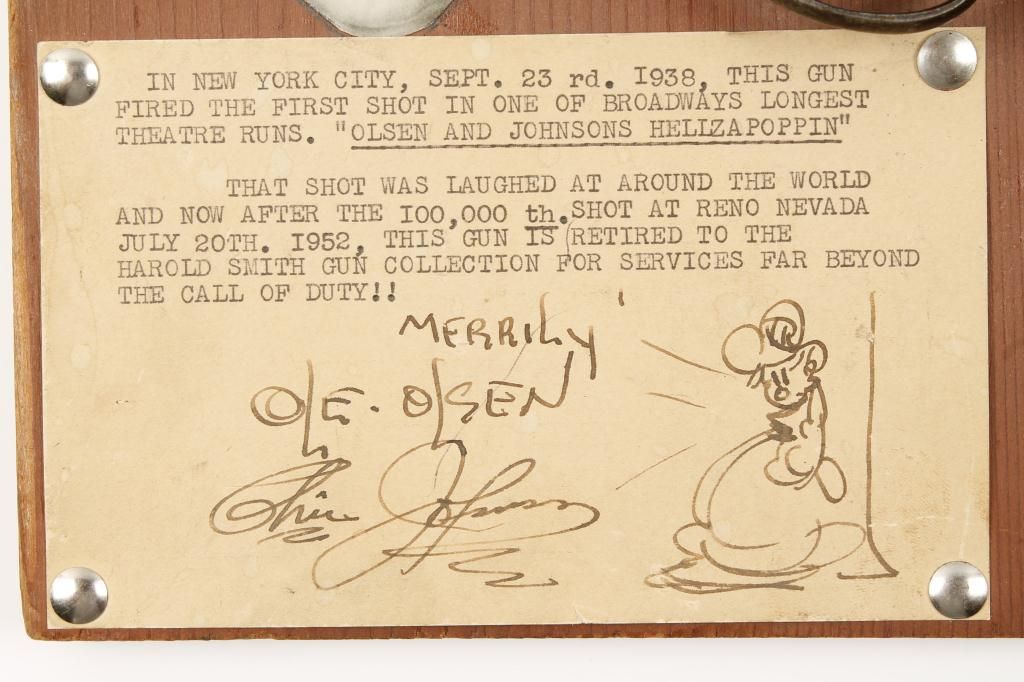 IN NEW YORK CITY, SEPT. 23 rd. I938, THIS GUN
FIRED THE FIRST SHOT IN ONE OF BROADWAYS LONGEST
THEATRE RUNS. "OLSEN AND JOHNSONS HELLZAPOPPIN"
THAT SHOT WAS LAUGHED AT AROUND THE WORLD
AND NOW AFTER THE I00,000 th. SHOT AT RENO NEVADA
JULY 20TH. I952, THIS GUN IS RETIRED TO THE
HAROLD SMITH GUN COLLECTION FOR SERVICES FAR BEYOND
THE CALL OF DUTY!!
MERRILY
OLE. OLSEN
Chic Johnson